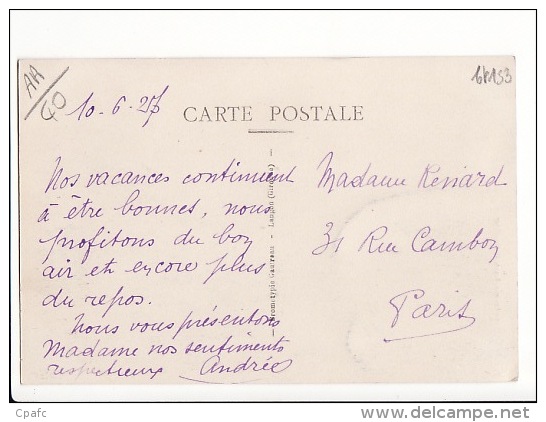 AA
40
6k153
10-6-27
CARTE POSTALE
Nos vacances continuent
à être bonnes, nous
profitons du bon
air et encore plus
du repos.
Nous vous présentons
Madame nos sentiments
respectieux Andrée
Phototypie Gautreau - Langon (Gironde)
Madame Renard
31 Rue Cambon
Paris
Cpafc
www.delcampe.net